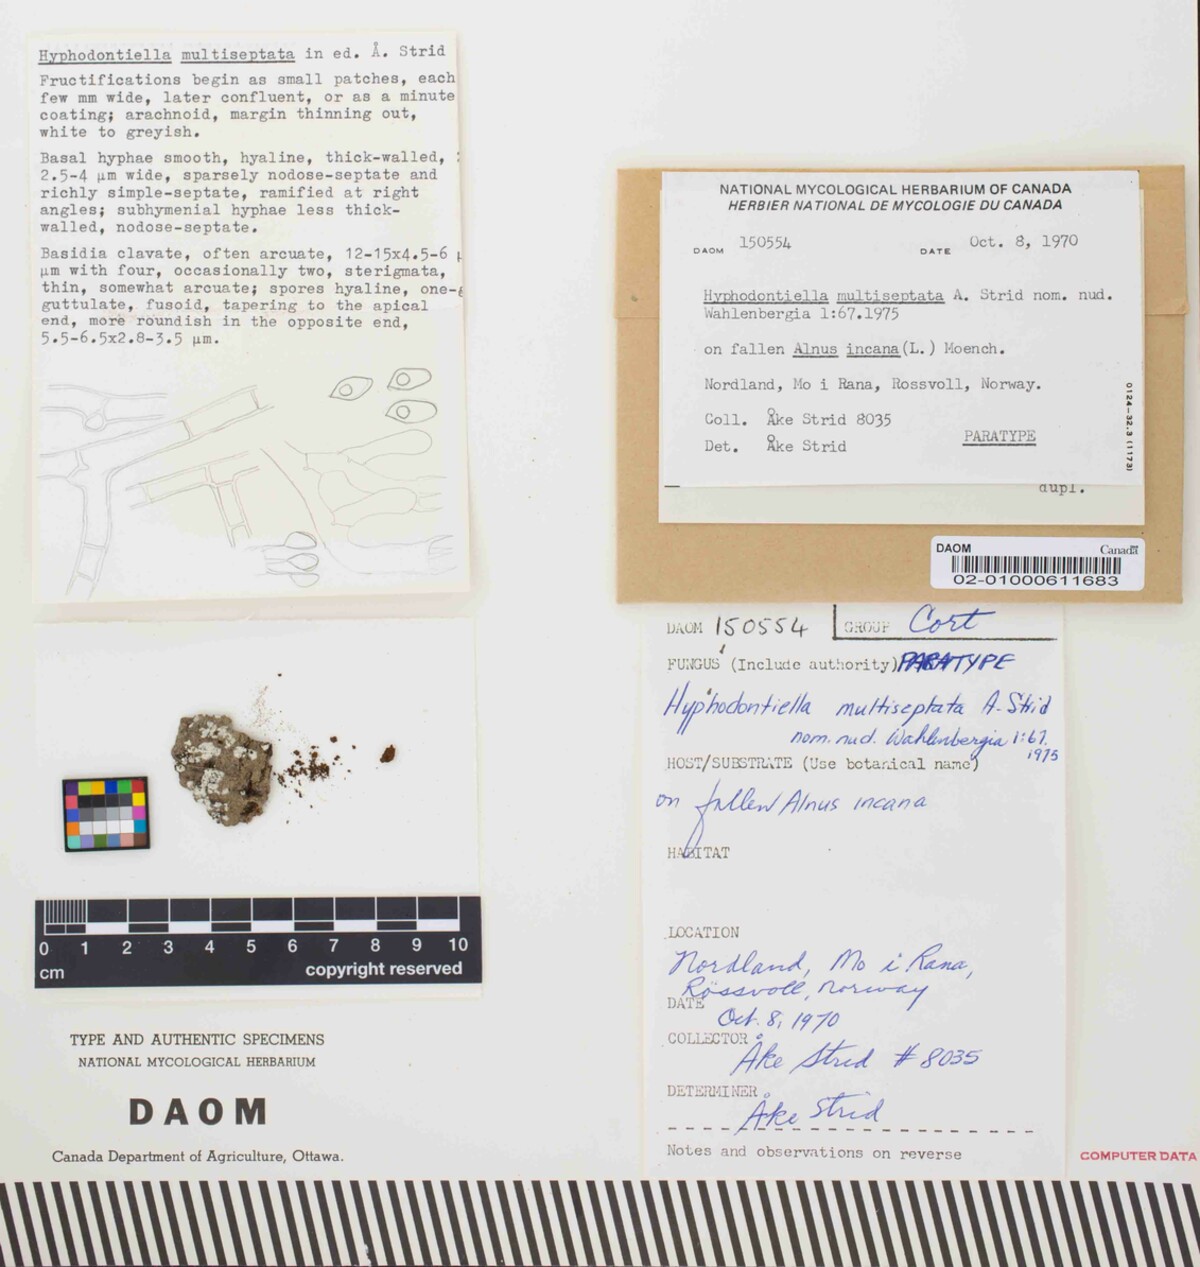 Hyphodontiella multiseptata in ed. Å. Strid
Fructifications begin as small patches, each
few mm wide, later confluent, or as a minute
coating; arachnoid, margin thinning out,
white to greyish.
Basal hyphae smooth, hyaline, thick-walled,
2.5-4 µm wide, sparsely nodose-septate and
richly simple-septate, ramified at right
angles; subhymenial hyphae less thick-
walled, nodose-septate.
Basidia clavate, often arcuate, 12-15x4.5-6
µm with four, occasionally two, sterigmata,
thin, somewhat arcuate; spores hyaline, one-
guttulate, fusoid, tapering to the apical
end, more roundish in the opposite end,
5.5-6.5x2.8-3.5 µm.
NATIONAL MYCOLOGICAL HERBARIUM OF CANADA
HERBIER NATIONAL DE MYCOLOGIE DU CANADA
DAOM 150554 DATE Oct. 8, 1970
Hyphodontiella multiseptata A. Strid nom. nud.
Wahlenbergia 1:67.1975
on fallen Alnus incana(L.) Moench.
Nordland, Mo i Rana, Rossvoll, Norway.
Coll. Åke Strid 8035
Det. Åke Strid
PARATYPE
0124-32.3 (1173)
dupl.
DAOM Canada
02-01000611683
DAOM 150554 GROUP Cort
FUNGUS (Include authority) PARATYPE
Hyphodontiella multiseptata A. Strid
nom. nud. Wahlenbergia 1:67.
1975
HOST/SUBSTRATE (Use botanical name)
on fallen Alnus incana
HABITAT
LOCATION
Nordland, Mo i Rana,
Rössvoll, Norway
DATE
Oct. 8, 1970
COLLECTOR
Åke Strid # 8035
DETERMINER
Åke Strid
Notes and observations on reverse
COMPUTER DATA
0 1 2 3 4 5 6 7 8 9 10
cm copyright reserved
TYPE AND AUTHENTIC SPECIMENS
NATIONAL MYCOLOGICAL HERBARIUM
DAOM
Canada Department of Agriculture, Ottawa.